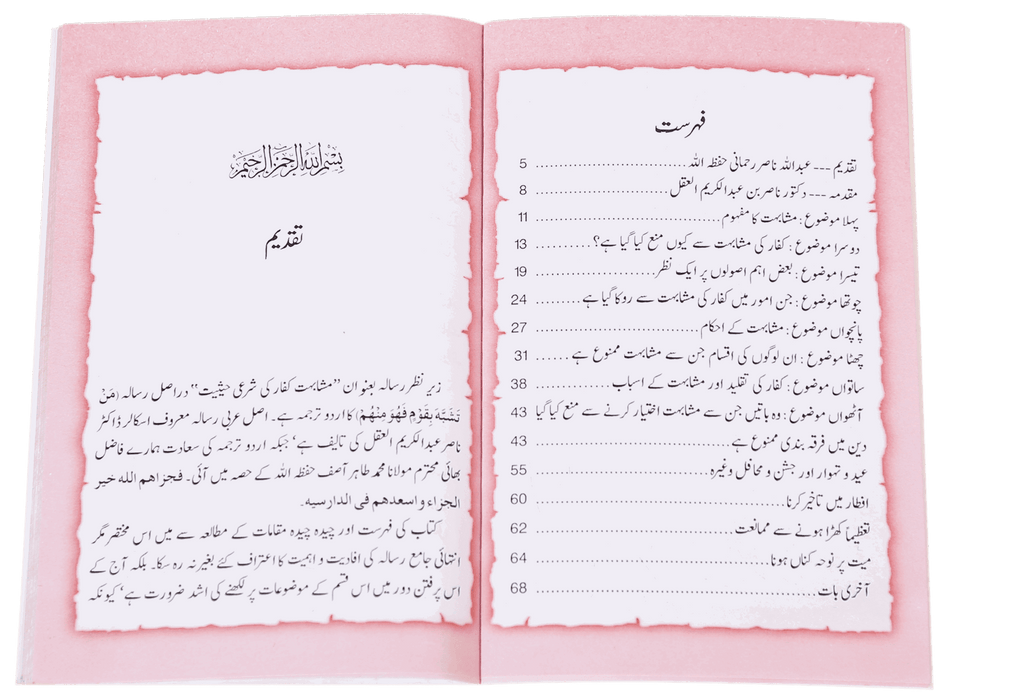 فہرست
تقدیم --- عبداللہ ناصر رحمانی حفظہ اللہ ................................ 5
مقدمہ --- دکتور ناصر بن عبدالکریم العقل ............................ 8
پہلا موضوع : مشابہت کا مفہوم ....................................... 11
دوسرا موضوع : کفار کی مشابہت سے کیوں منع کیا گیا ہے؟ .......... 13
تیسرا موضوع : بعض اہم اصولوں پر ایک نظر ......................... 19
چوتھا موضوع : جن امور میں کفار کی مشابہت سے روکا گیا ہے ......... 24
پانچواں موضوع : مشابہت کے احکام .................................. 27
چھٹا موضوع : ان لوگوں کی اقسام جن سے مشابہت ممنوع ہے ...... 31
ساتواں موضوع : کفار کی تقلید اور مشابہت کے اسباب ............. 38
آٹھواں موضوع : وہ باتیں جن سے مشابہت اختیار کرنے سے منع کیا گیا 43
دین میں فرقہ بندی ممنوع ہے ........................................ 43
عید و تہوار اور جشن و محافل وغیرہ .................................... 55
افطار میں تاخیر کرنا .................................................... 60
تعظیماً کھڑا ہونے سے ممانعت ........................................ 62
میت پر نوحہ کناں ہونا ................................................. 64
آخری بات ........................................................... 68
بسم اللہ الرحمن الرحیم
تقدیم
زیر نظر رسالہ بعنوان ”مشابہت کفار کی شرعی حیثیت“ دراصل رسالہ (مَنْ
تَشَبَّهَ بِقَوْمٍ فَهُوَ مِنْهُمْ) کا اردو ترجمہ ہے۔ اصل عربی رسالہ معروف اسکالر ڈاکٹر
ناصر عبدالکریم العقل کی تالیف ہے‘ جبکہ اردو ترجمہ کی سعادت ہمارے فاضل
بھائی محترم مولانا محمد طاہر آصف حفظہ اللہ کے حصہ میں آئی۔ فجزاهم الله خير
الجزاء واسعدهم فی الدارسیہ۔
کتاب کی فہرست اور چیدہ چیدہ مقامات کے مطالعہ سے میں اس مختصر مگر
انتہائی جامع رسالہ کی افادیت و اہمیت کا اعتراف کئے بغیر نہ رہ سکا۔ بلکہ آج کے
اس پرفتن دور میں اس قسم کے موضوعات پر لکھنے کی اشد ضرورت ہے‘ کیونکہ